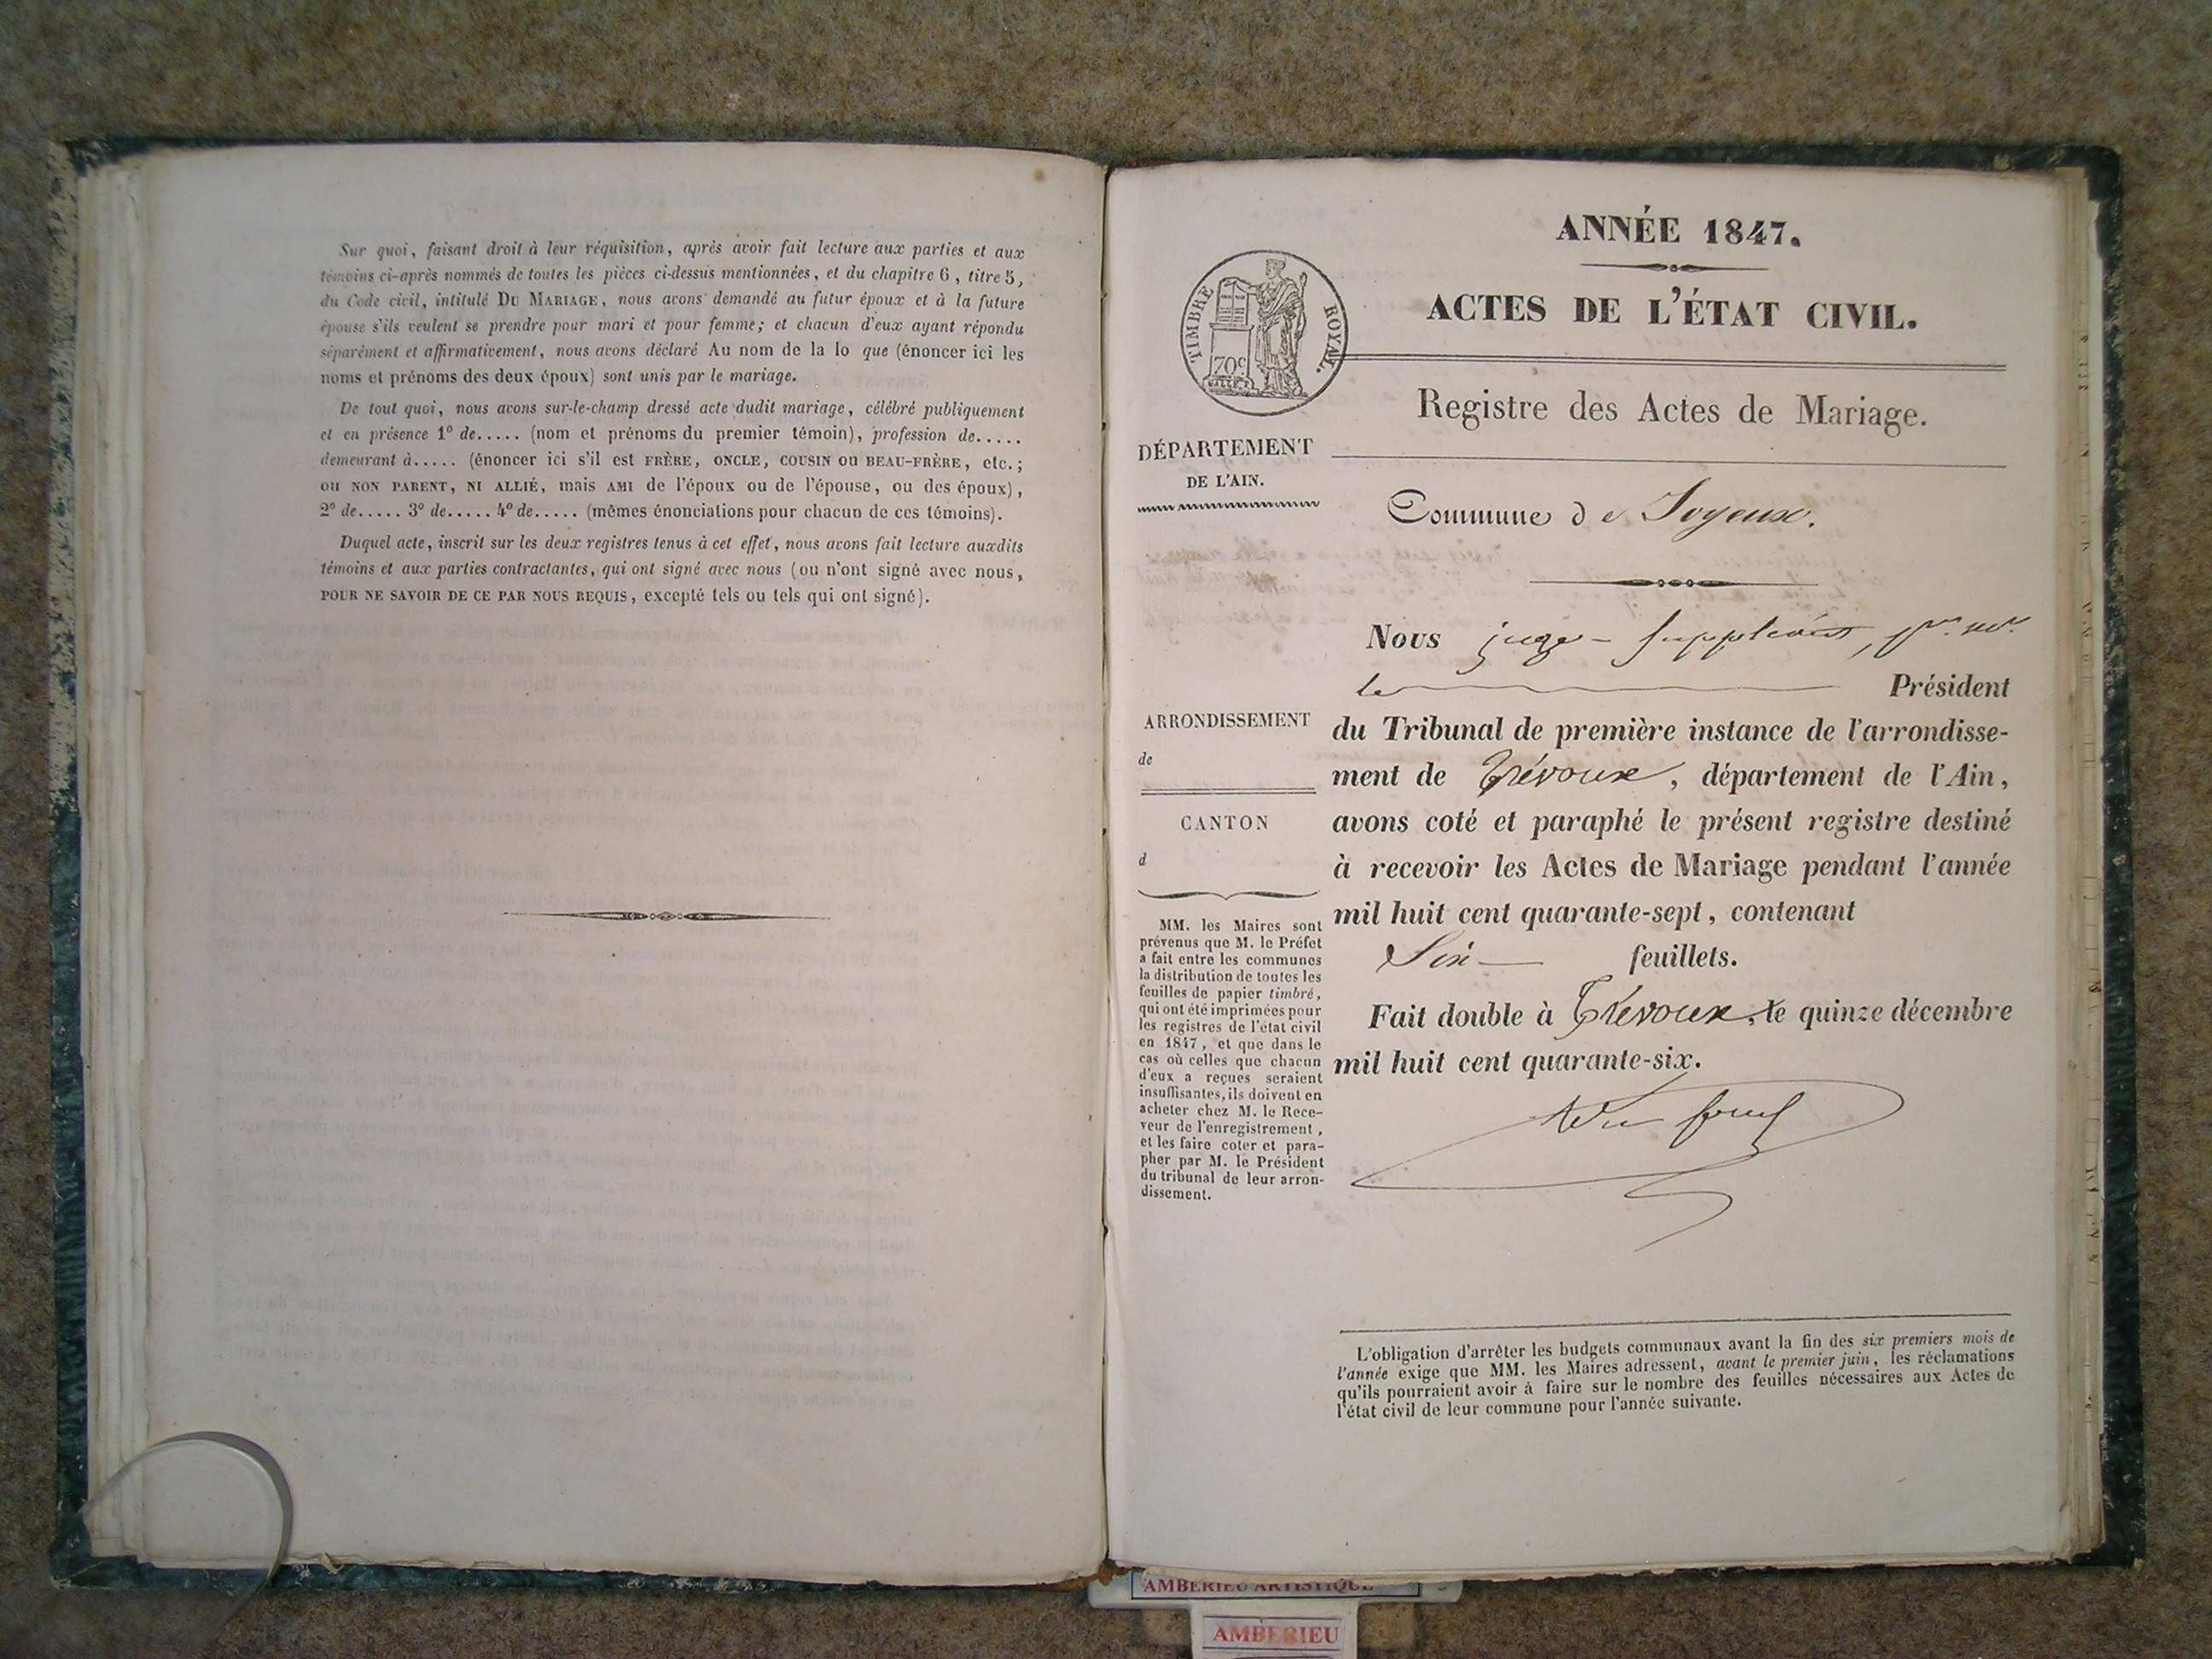 Sur quoi, faisant droit à leur réquisition, après avoir fait lecture aux parties et aux
témoins ci-après nommés de toutes les pièces ci-dessus mentionnées, et du chapitre 6, titre 5,
du Code civil, intitulé DU MARIAGE, nous avons demandé au futur époux et à la future
épouse s'ils veulent se prendre pour mari et pour femme; et chacun d'eux ayant répondu
séparément et affirmativement, nous avons déclaré Au nom de la lo que (énoncer ici les
noms et prénoms des deux époux) sont unis par le mariage.
De tout quoi, nous avons sur-le-champ dressé acte dudit mariage, célébré publiquement
et en présence 1º de..... (nom et prénoms du premier témoin), profession de.....
demeurant à..... (énoncer ici s'il est FRÈRE, ONCLE, COUSIN OU BEAU-FRÈRE, etc.;
OU NON PARENT, NI ALLIÉ, mais AMI de l'époux ou de l'épouse, ou des époux),
2º de..... 3º de..... 4º de..... (mêmes énonciations pour chacun de ces témoins).
Duquel acte, inscrit sur les deux registres tenus à cet effet, nous avons fait lecture auxdits
témoins et aux parties contractantes, qui ont signé avec nous (ou n'ont signé avec nous,
POUR NE SAVOIR DE CE PAR NOUS REQUIS, excepté tels ou tels qui ont signé).
ANNÉE 1847.
ACTES DE L'ÉTAT CIVIL.
TIMBRE ROYAL.
70c
Registre des Actes de Mariage.
DÉPARTEMENT
DE L'AIN.
Commune de Joyeux.
Nous juge-suppléant, pr. mr.
le Président
ARRONDISSEMENT
de
CANTON
d
du Tribunal de première instance de l'arrondisse-
ment de Trévoux, département de l'Ain,
avons coté et paraphé le présent registre destiné
à recevoir les Actes de Mariage pendant l'année
mil huit cent quarante-sept, contenant
Six feuillets.
Fait double à Trévoux, le quinze décembre
mil huit cent quarante-six.
MM. les Maires sont
prévenus que M. le Préfet
a fait entre les communes
la distribution de toutes les
feuilles de papier timbré,
qui ont été imprimées pour
les registres de l'état civil
en 1847, et que dans le
cas où celles que chacun
d'eux a reçues seraient
insuffisantes, ils doivent en
acheter chez M. le Rece-
veur de l'enregistrement,
et les faire coter et para-
pher par M. le Président
du tribunal de leur arron-
dissement.
L'obligation d'arrêter les budgets communaux avant la fin des six premiers mois de
l'année exige que MM. les Maires adressent, avant le premier juin, les réclamations
qu'ils pourraient avoir à faire sur le nombre des feuilles nécessaires aux Actes de
l'état civil de leur commune pour l'année suivante.
AMBERIEU ARTISTIQUE
AMBERIEU